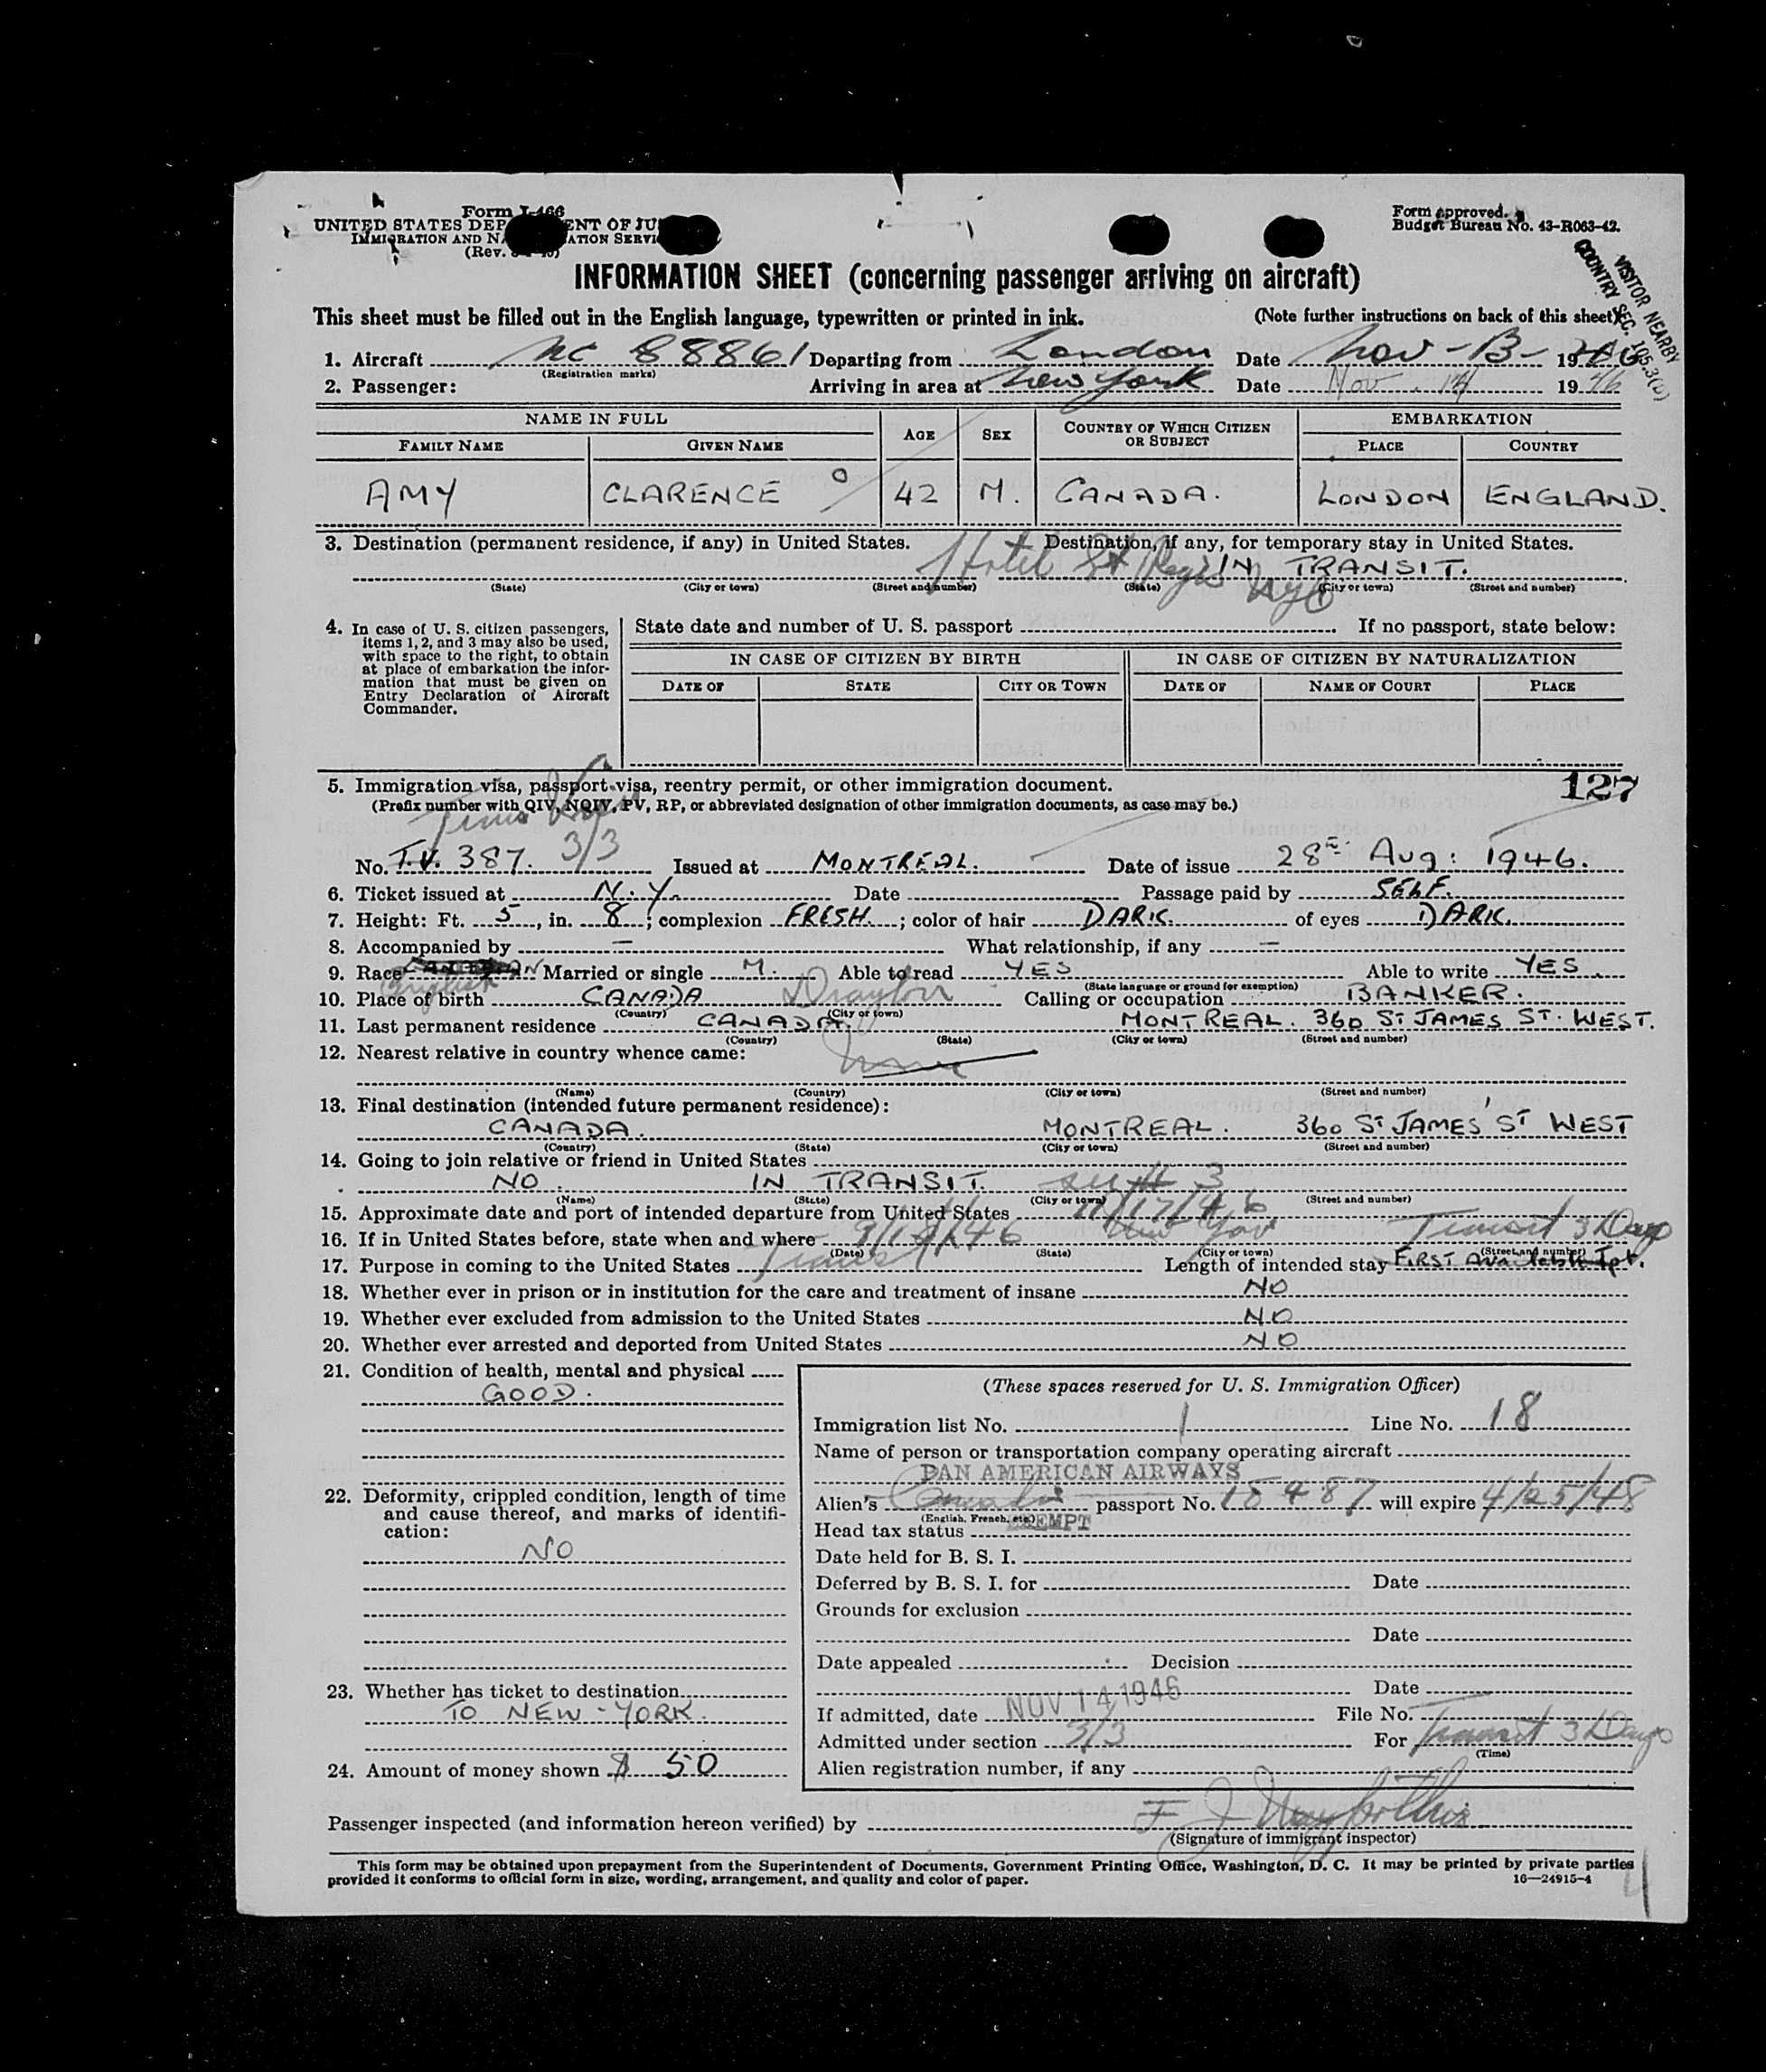 Form I-466
UNITED STATES DEP ENT OF JU
IMMIGRATION AND NA ATION SERVI
(Rev.
Form approved.
Budget Bureau No. 43-R063-42.
VISITOR NEARBY
COUNTRY SEC. 105.3(b)
INFORMATION SHEET (concerning passenger arriving on aircraft)
This sheet must be filled out in the English language, typewritten or printed in ink. (Note further instructions on back of this sheet)
1. Aircraft NC 88861 Departing from London Date Nov-13- 1946
(Registration marks)
2. Passenger: Arriving in area at New York Date Nov. 14 1946
NAME IN FULL AGE SEX COUNTRY OF WHICH CITIZEN OR SUBJECT EMBARKATION
FAMILY NAME GIVEN NAME PLACE COUNTRY
AMY CLARENCE O 42 M. CANADA. LONDON ENGLAND.
3. Destination (permanent residence, if any) in United States. Destination, if any, for temporary stay in United States.
Hotel St Regis NYC IN TRANSIT.
(State) (City or town) (Street and number) (State) (City or town) (Street and number)
4. In case of U. S. citizen passengers,
items 1, 2, and 3 may also be used,
with space to the right, to obtain
at place of embarkation the infor-
mation that must be given on
Entry Declaration of Aircraft
Commander.
State date and number of U. S. passport If no passport, state below:
IN CASE OF CITIZEN BY BIRTH IN CASE OF CITIZEN BY NATURALIZATION
DATE OF STATE CITY OR TOWN DATE OF NAME OF COURT PLACE
5. Immigration visa, passport visa, reentry permit, or other immigration document. 127
(Prefix number with QIV, NQIV, PV, RP, or abbreviated designation of other immigration documents, as case may be.)
3/3
No. T.V. 387. Issued at MONTREAL. Date of issue 28th Aug: 1946.
6. Ticket issued at N.Y. Date Passage paid by SELF.
7. Height: Ft. 5, in. 8; complexion FRESH; color of hair DARK. of eyes DARK.
8. Accompanied by — What relationship, if any —
9. Race English Married or single M. Able to read YES Able to write YES.
(State language or ground for exemption)
10. Place of birth CANADA Drayton Calling or occupation BANKER.
(Country) (City or town)
11. Last permanent residence CANADA. MONTREAL. 360 ST JAMES ST. WEST.
(Country) (State) (City or town) (Street and number)
12. Nearest relative in country whence came:
none
(Name) (Country) (City or town) (Street and number)
13. Final destination (intended future permanent residence):
CANADA. MONTREAL. 360 ST JAMES' ST WEST
(Country) (State) (City or town) (Street and number)
14. Going to join relative or friend in United States
NO. IN TRANSIT.
(Name) (State) (City or town) (Street and number)
15. Approximate date and port of intended departure from United States 11/17/46
16. If in United States before, state when and where 9/18/46 New York Transit 3 Days
(Date) (State) (City or town) (Street and number)
17. Purpose in coming to the United States Transit Length of intended stay FIRST Available Tpt.
18. Whether ever in prison or in institution for the care and treatment of insane NO
19. Whether ever excluded from admission to the United States NO
20. Whether ever arrested and deported from United States NO
21. Condition of health, mental and physical
GOOD.
22. Deformity, crippled condition, length of time
and cause thereof, and marks of identifi-
cation:
NO
23. Whether has ticket to destination
TO NEW-YORK.
24. Amount of money shown $ 50
(These spaces reserved for U. S. Immigration Officer)
Immigration list No. 1 Line No. 18
Name of person or transportation company operating aircraft
PAN AMERICAN AIRWAYS
Alien's Canadian passport No. 18487 will expire 4/25/48
(English, French, etc.)
Head tax status EXEMPT
Date held for B. S. I.
Deferred by B. S. I. for Date
Grounds for exclusion
Date
Date appealed Decision
Date
If admitted, date NOV 14 1946 File No.
Admitted under section 3/3 For Transit 3 Days
(Time)
Alien registration number, if any
Passenger inspected (and information hereon verified) by F J
(Signature of immigrant inspector)
This form may be obtained upon prepayment from the Superintendent of Documents, Government Printing Office, Washington, D. C. It may be printed by private parties
provided it conforms to official form in size, wording, arrangement, and quality and color of paper. 16—24915-4